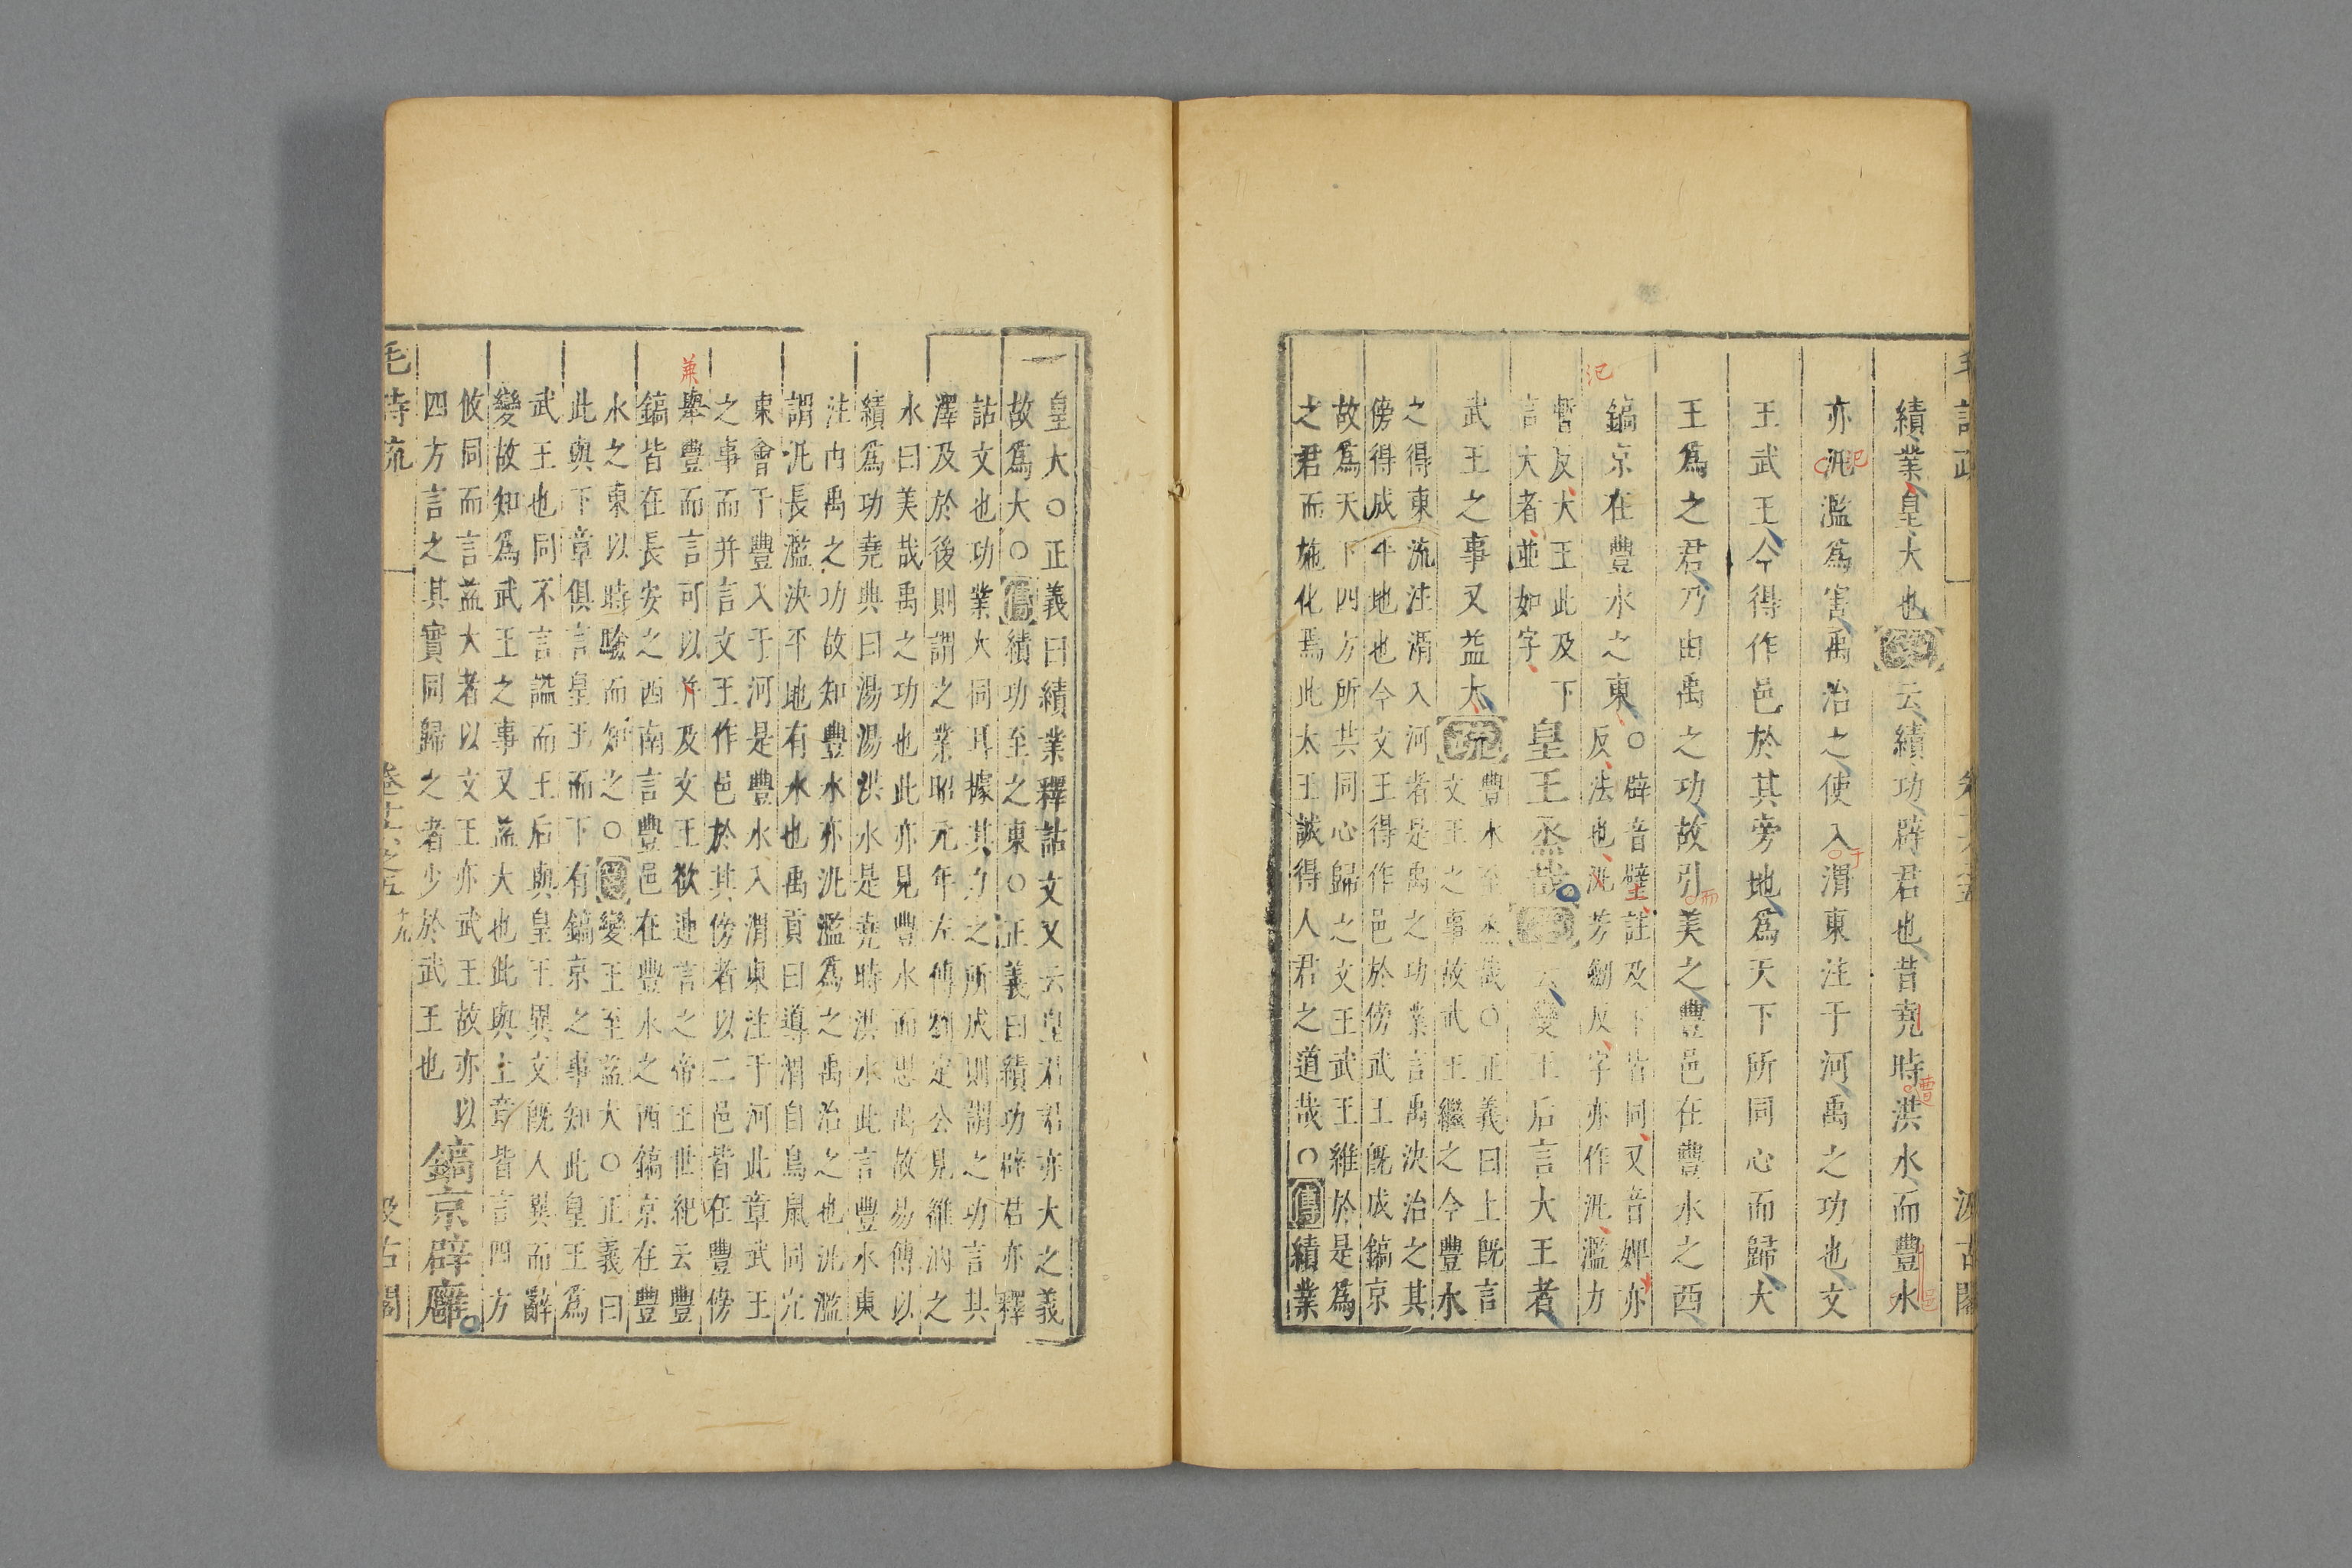 績業皇大也箋云績功辟君也昔堯時洪水而豐水
亦汎濫爲害禹治之使入渭東注于河禹之功也文
王武王今得作邑於其旁地爲天下所同心而歸大
王爲之君乃由禹之功故引美之豐邑在豐水之西
鎬京在豐水之東○辟音璧註及下皆同又音婢亦
反法也汎芳劒反字亦作汎濫力
暫反大王此及下
言大者並如字
皇王烝哉箋云變王后言大王者
武王之事又益大疏豐水至烝哉○正義曰上旣言
文王之事故武王繼之今豐水
之得東流注渭入河者是禹之功業言禹決治之其
傍得成平地也今文王得作邑於傍武王旣成鎬京
故爲天下四方所共同心歸之文王武王維於是爲
之君而施化焉此大王誠得人君之道哉○傳績業
皇大○正義曰績業釋詁文又云皇君君亦大之義
故爲大○箋績功至之東○正義曰績功辟君亦釋
詁文也功業大同耳據其力之所成則謂之功言其
澤及於後則謂之業昭元年左傳劉定公見雒汭之
水曰美哉禹之功也此亦見豐水而思禹故易傳以
績爲功堯典曰湯湯洪水是堯時洪水此言豐水東
注由禹之功故知豐水亦汎濫爲之禹治之也汎濫
謂汎長濫決平地有水也禹貢曰導渭自鳥鼠同穴
東會于豐入于河是豐水入渭東注于河此章武王
之事而并言文王作邑於其傍者以二邑皆在豐傍
舉豐而言可以并及文王欲連言之帝王世紀云豐
鎬皆在長安之西南言豐邑在豐水之西鎬京在豐
水之東以時驗而知之○箋變王至益大○正義曰
此與下章俱言皇王而下有鎬京之事知此皇王爲
武王也同不言謚而王后與皇王異文旣人異而辭
變故知爲武王之事又益大也此與上章皆言四方
攸同而言益大者以文王亦武王故亦以
四方言之其實同歸之者少於武王也
鎬京辟廱
毛詩疏
卷十六之五
十九
汲古閣
汜
汜
于
而
遭
邑
兼